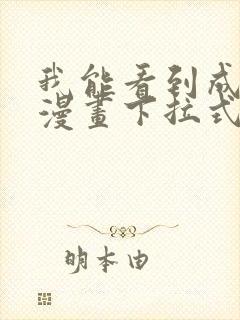 我能看到成
漫畫下拉式
明本由